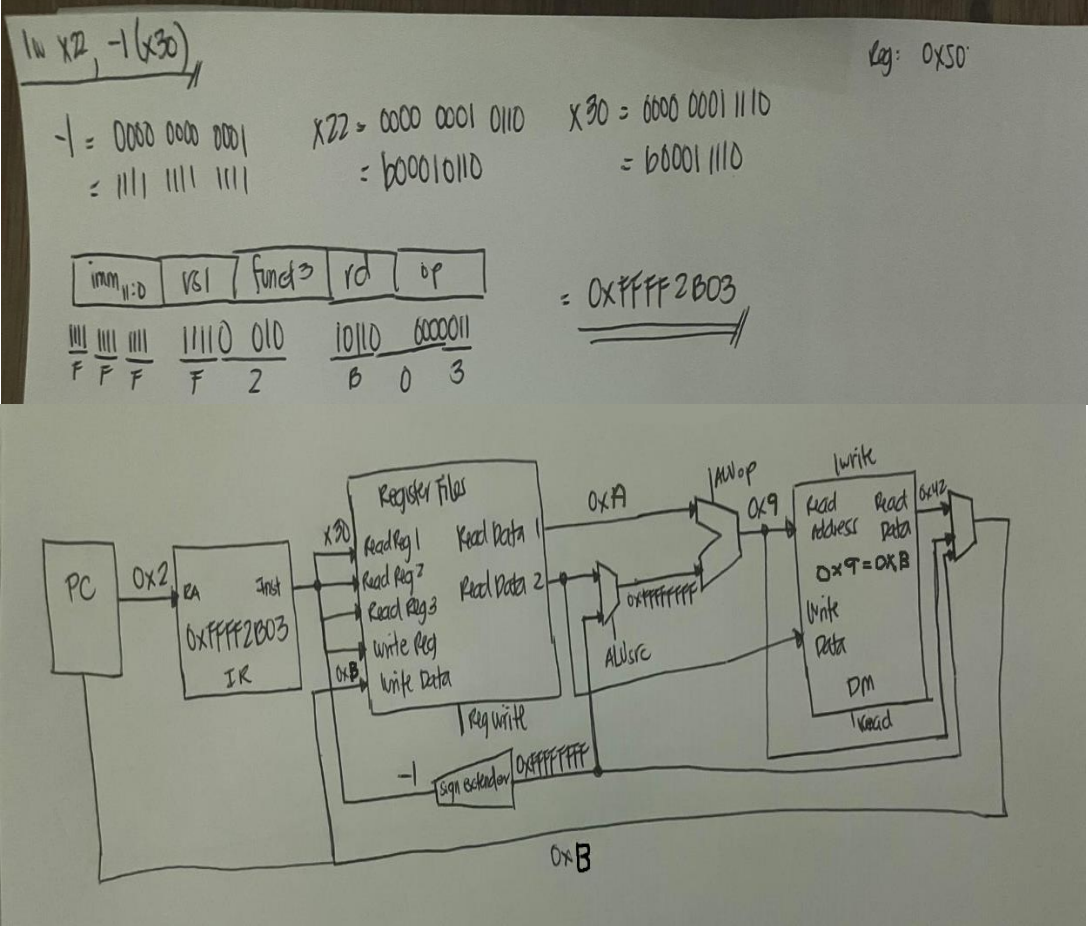 lw x22, -1(x30)
Reg: 0x50
-1 = 0000 0000 0001
= 1111 1111 1111
x22 = 0000 0001 0110
= b00010110
x30 = 0000 0001 1110
= b0001 1110
imm11:0 rs1 funct3 rd op
1111 1111 1111 11110 010 10110 0000011
F F F F 2 B 0 3
= 0xFFFF2B03
PC
0x2
RA Inst
0xFFFF2B03
IR
Register Files
x30
Read Reg 1
Read Reg 2
Read Reg 3
Write Reg
0xB
Write Data
Read Data 1
Read Data 2
Reg write
-1
Sign extender
0xFFFFFFFF
0xA
0xFFFFFFFF
ALUsrc
ALUop
0x9
write
Read Address
Read Data
0x9 = 0xB
Write Data
DM
read
0x42
0xB